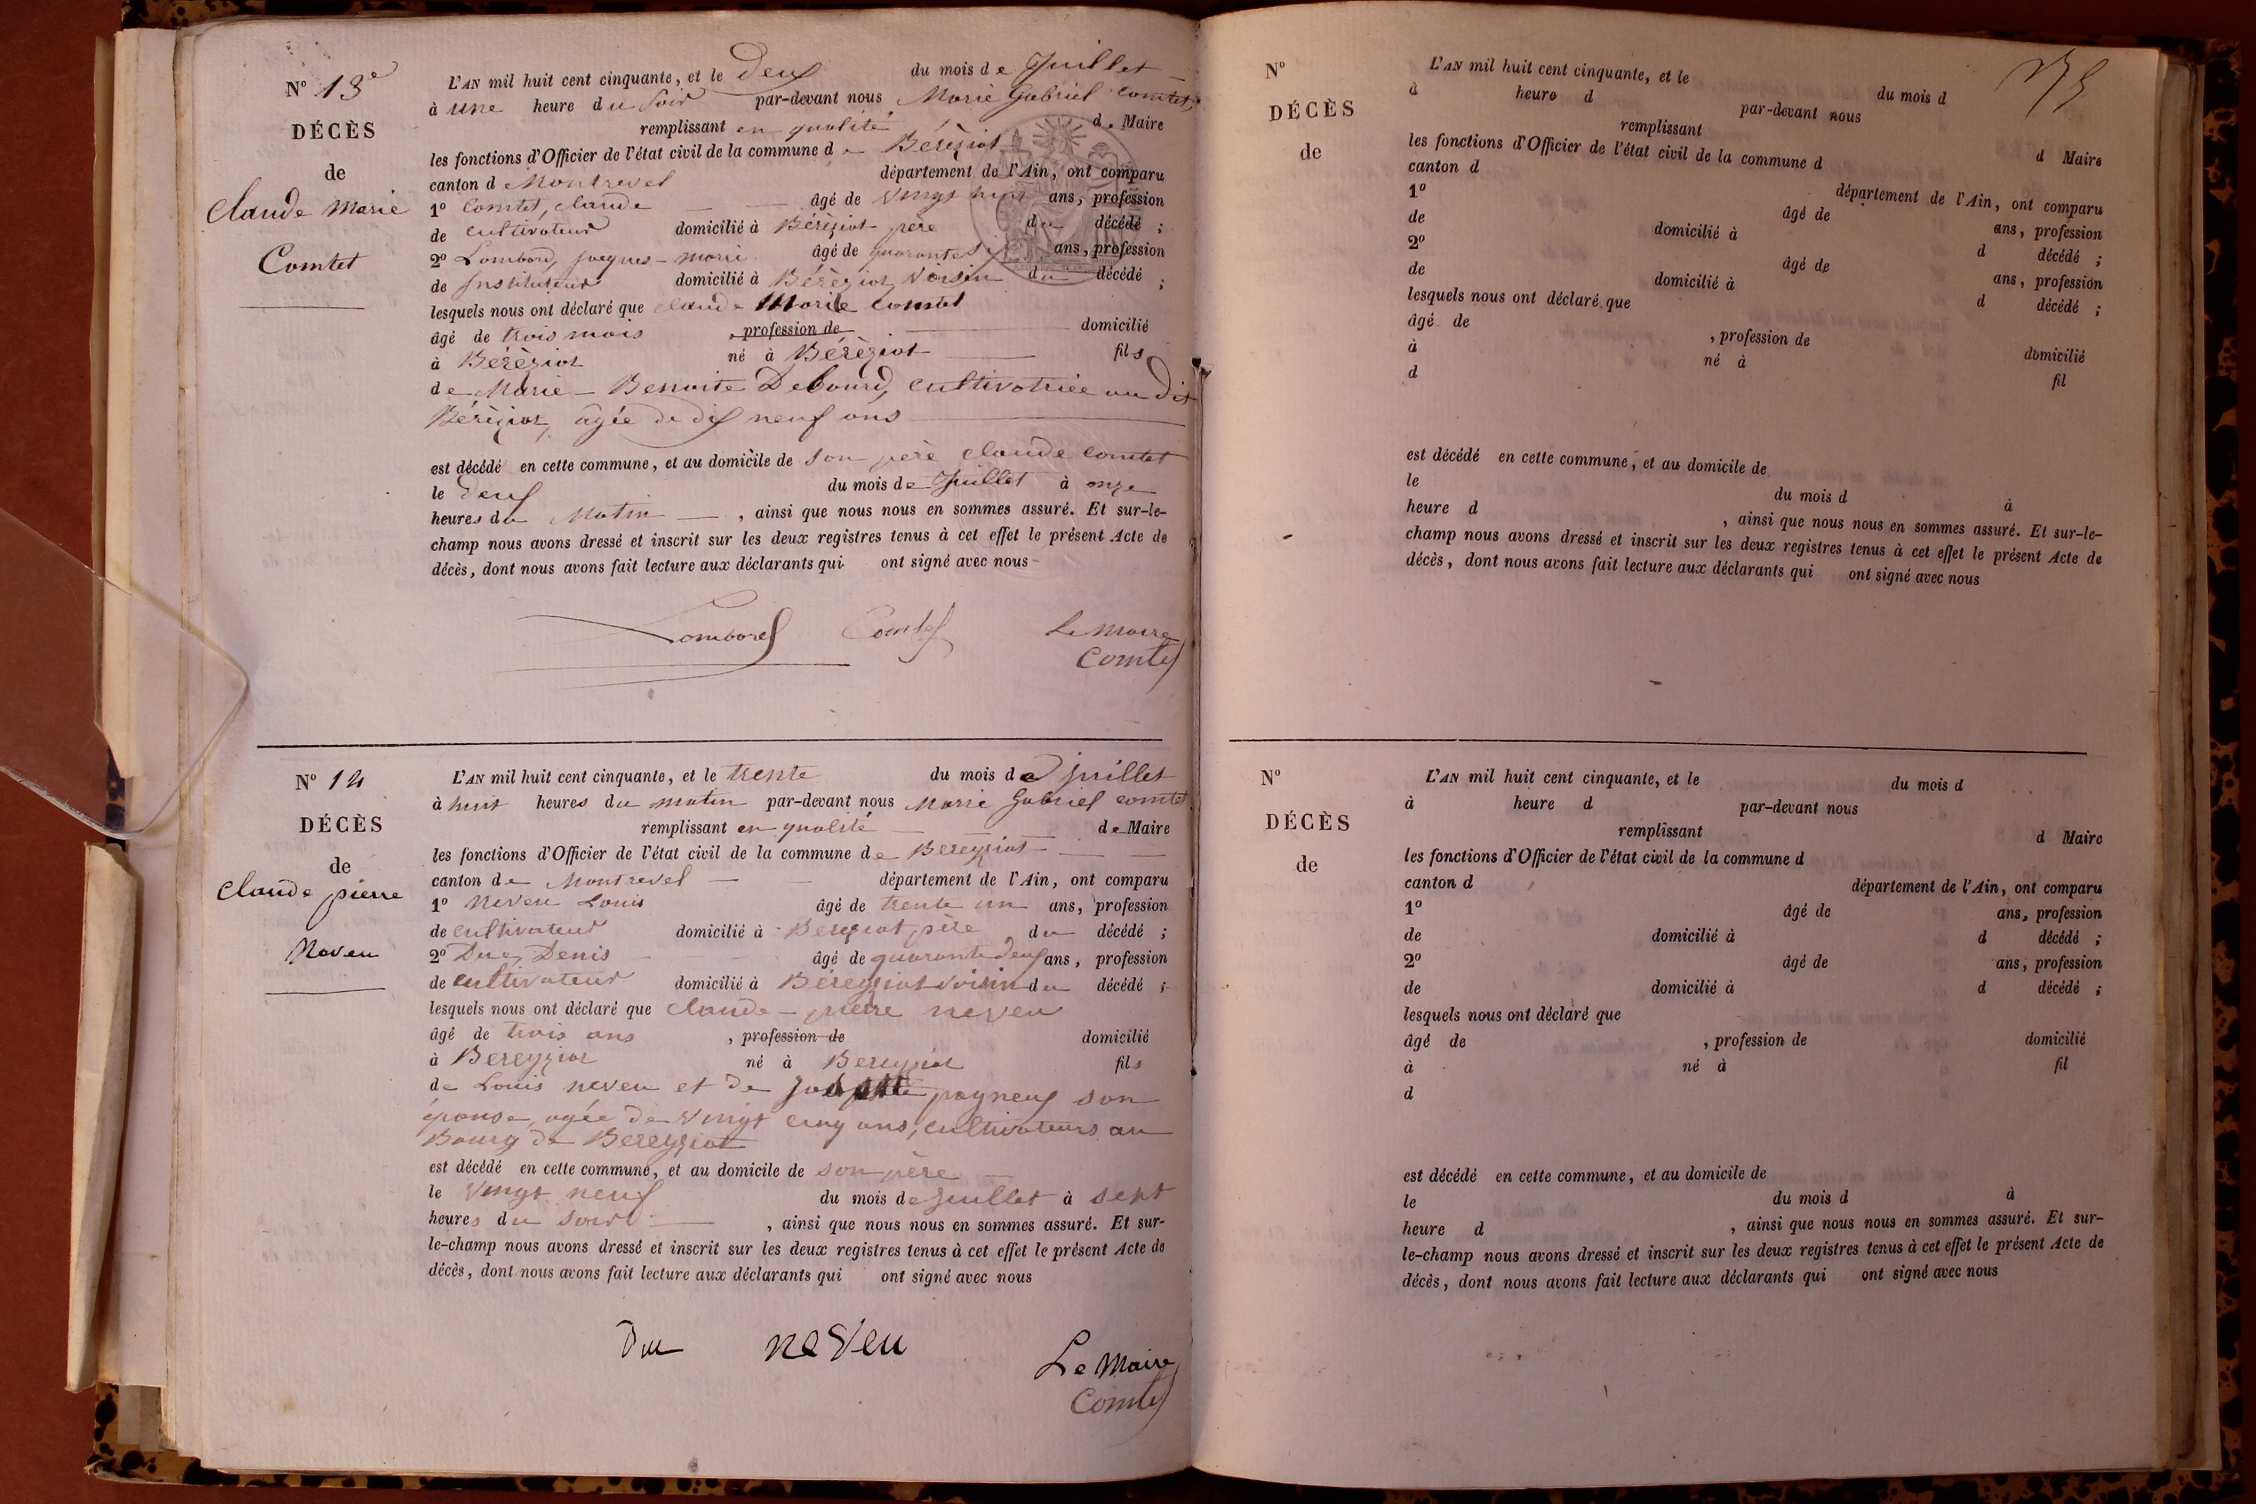 N° 13e
DÉCÈS
de
Claude Marie
Comtet
L'AN mil huit cent cinquante, et le deux du mois de Juillet
à une heure du soir par-devant nous Marie Gabriel Comtet
remplissant en qualité de Maire
les fonctions d'Officier de l'état civil de la commune de Béréziat
canton d Montrevel département de l'Ain, ont comparu
1° Comtet, Claude âgé de vingt huit ans, profession
de cultivateur domicilié à Béréziat père du décédé ;
2° Lombard, Jacques-marie âgé de quarante six ans, profession
de Instituteur domicilié à Béréziat Voisin du décédé ;
lesquels nous ont déclaré que Claude Marie Comtet
âgé de trois mois , profession de domicilié
à Béréziat né à Béréziat fils
de Marie-Benoite Debourd, cultivatrice au dit
Béréziat, agée de dix neuf ans
est décédé en cette commune, et au domicile de son père Claude Comtet
le deux du mois de Juillet à onze
heures du Matin , ainsi que nous nous en sommes assuré. Et sur-le-
champ nous avons dressé et inscrit sur les deux registres tenus à cet effet le présent Acte de
décès, dont nous avons fait lecture aux déclarants qui ont signé avec nous
Lombard Comtet Le Maire
Comtet
N° 14
DÉCÈS
de
Claude pierre
Neveu
L'AN mil huit cent cinquante, et le trente du mois de Juillet
à huit heures du matin par-devant nous Marie Gabriel Comtet
remplissant en qualité de Maire
les fonctions d'Officier de l'état civil de la commune de Bereyziat
canton de Montrevel département de l'Ain, ont comparu
1° Neveu Louis âgé de trente un ans, profession
de cultivateur domicilié à Bereyziat père du décédé ;
2° Duc, Denis âgé de quarante deux ans, profession
de cultivateur domicilié à Béreyziat voisin du décédé ;
lesquels nous ont déclaré que Claude-pierre neveu
âgé de trois ans , profession de domicilié
à Bereyziat né à Bereyziat fils
de Louis neveu et de son
épouse, agée de vingt cinq ans, cultivateurs au
Bourg de Bereyziat
est décédé en cette commune, et au domicile de son père
le vingt neuf du mois de Juillet à sept
heures du soir , ainsi que nous nous en sommes assuré. Et sur-
le-champ nous avons dressé et inscrit sur les deux registres tenus à cet effet le présent Acte de
décès, dont nous avons fait lecture aux déclarants qui ont signé avec nous
Duc neveu Le Maire
Comtet
N°
DÉCÈS
de
L'AN mil huit cent cinquante, et le du mois d
à heure d par-devant nous
remplissant d Maire
les fonctions d'Officier de l'état civil de la commune d
canton d département de l'Ain, ont comparu
1° âgé de ans, profession
de domicilié à d décédé ;
2° âgé de ans, profession
de domicilié à d décédé ;
lesquels nous ont déclaré que
âgé de , profession de domicilié
à né à fil
d
est décédé en cette commune, et au domicile de
le du mois d à
heure d , ainsi que nous nous en sommes assuré. Et sur-le-
champ nous avons dressé et inscrit sur les deux registres tenus à cet effet le présent Acte de
décès, dont nous avons fait lecture aux déclarants qui ont signé avec nous
N°
DÉCÈS
de
L'AN mil huit cent cinquante, et le du mois d
à heure d par-devant nous
remplissant d Maire
les fonctions d'Officier de l'état civil de la commune d
canton d département de l'Ain, ont comparu
1° âgé de ans, profession
de domicilié à d décédé ;
2° âgé de ans, profession
de domicilié à d décédé ;
lesquels nous ont déclaré que
âgé de , profession de domicilié
à né à fil
d
est décédé en cette commune, et au domicile de
le du mois d à
heure d , ainsi que nous nous en sommes assuré. Et sur-
le-champ nous avons dressé et inscrit sur les deux registres tenus à cet effet le présent Acte de
décès, dont nous avons fait lecture aux déclarants qui ont signé avec nous